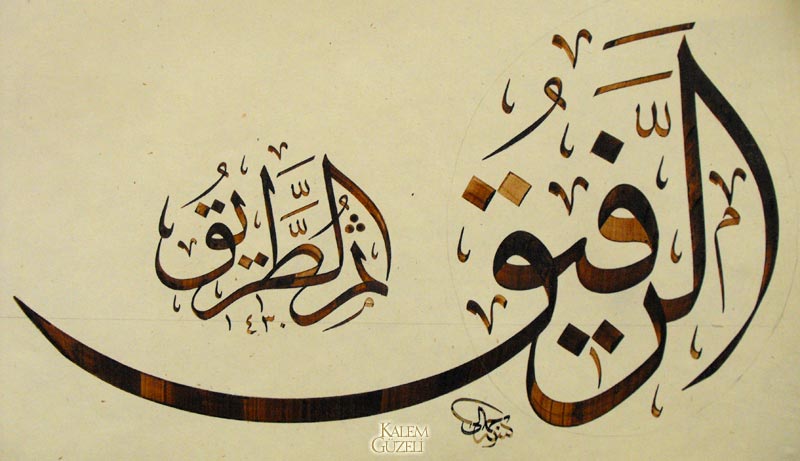 الرَّفيقُ
ثمّ الطَّريقُ
١٤٣٠
KALEM
GÜZELİ